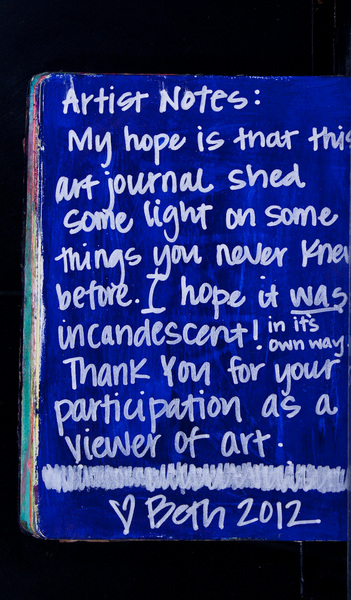 Artist Notes:
My hope is that this
art journal shed
some light on some
things you never knew
before. I hope it was
incandescent! in it's
own way.
Thank You for your
participation as a
viewer of art.
♡ Beth 2012